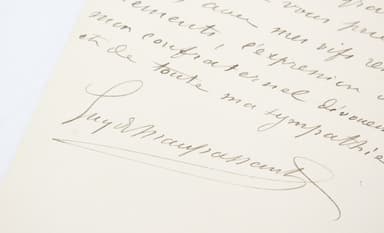 vous
avec mes vifs re
ements, l'expression
mon confraternel dévoue
et de toute ma sympathie
Guy de Maupassant